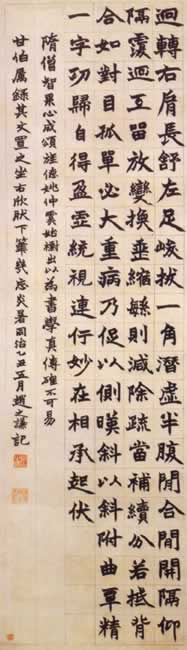 迴轉右肩長舒左足峻拔一角潛虛半腹閒合閒開隔仰
隔覆迴互留放變換垂縮緐則減除疏當補續分若抵背
合如對目孤單必大重病乃促以側暎斜以斜附曲覃精
一字功歸自得盈虛統視連行妙在相承起伏
隋僧智果心成頌姚仲雲始出以為書學真傳確不可易
甘伯屬錄其文置之坐右欣肰下筆幾忘炎暑同治乙丑五月趙之謙記